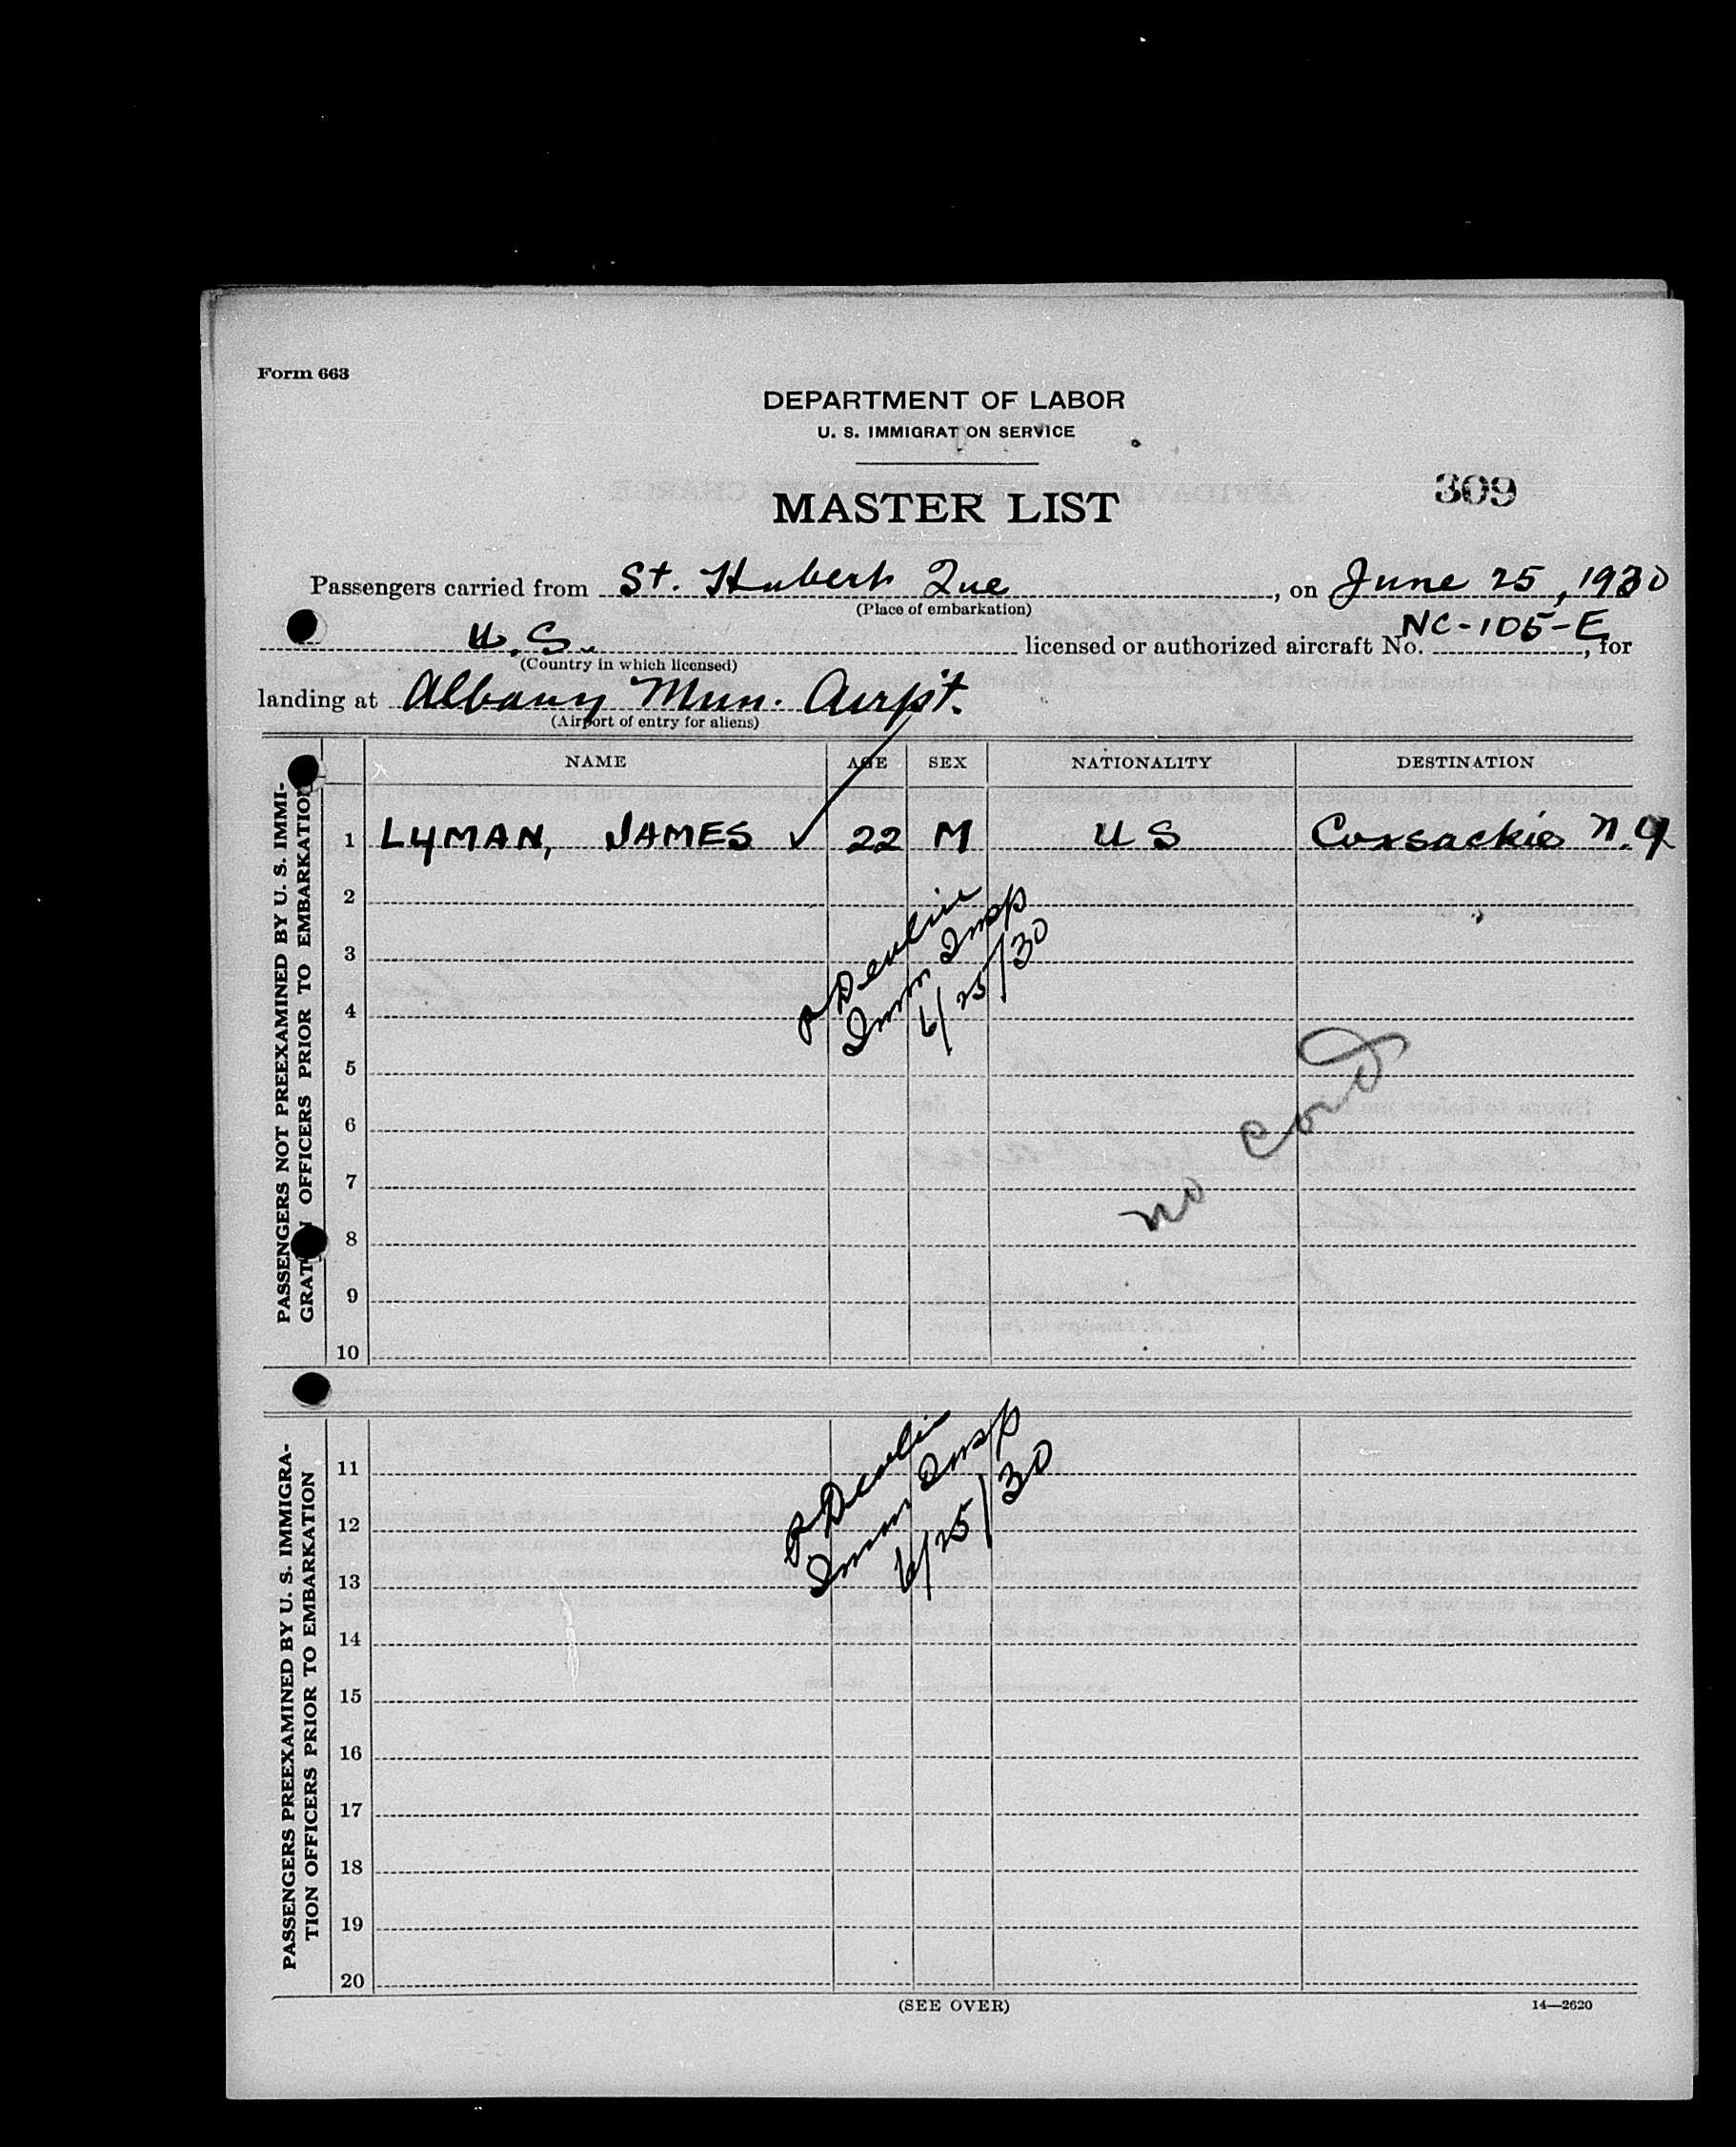 Form 663
DEPARTMENT OF LABOR
U. S. IMMIGRAT ON SERVICE
MASTER LIST
309
Passengers carried from St. Hubert Que, on June 25, 1930
(Place of embarkation)
U.S. licensed or authorized aircraft No. NC-105-E, for
(Country in which licensed)
landing at Albany Mun. Airpt.
(Airport of entry for aliens)
NAME AGE SEX NATIONALITY DESTINATION
PASSENGERS NOT PREEXAMINED BY U. S. IMMI-
GRAT N OFFICERS PRIOR TO EMBARKATION
1 LYMAN, JAMES ✓ 22 M U S Coxsackie N.Y
2
3
4
5
6
7
8
9
10
P Devlin
Imm Insp
6/25/30
no card
PASSENGERS PREEXAMINED BY U. S. IMMIGRA-
TION OFFICERS PRIOR TO EMBARKATION
11
12
13
14
15
16
17
18
19
20
P Devlin
Imm Insp
6/25/30
(SEE OVER)
14—2620